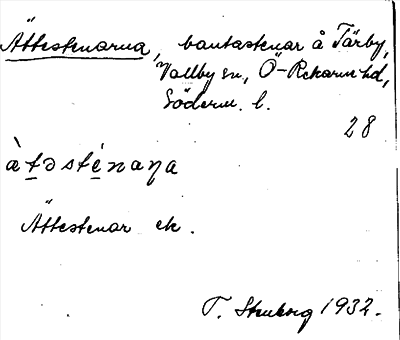 Ättestenarna, bautastenar å Tärby,
Vallby sn, Ö-Rekarne hd,
Söderm. l.
28
àt̠əsté̠naɳa
Ättestenar ek.
T. Stenberg 1932.